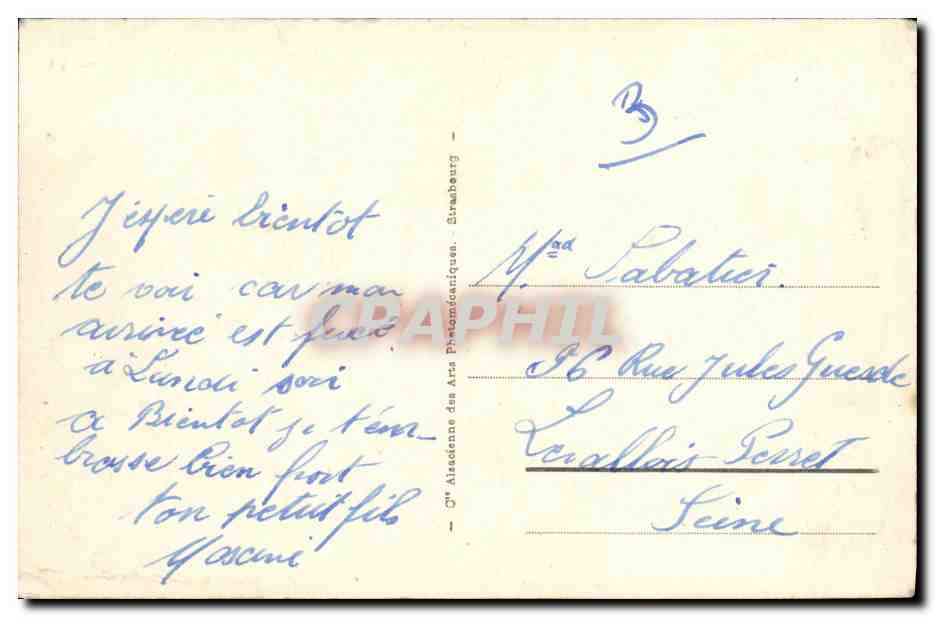 J'espere bientôt
te voir car mon
arrivée est fixé
à Lundi soir
a Bientot je t'em-
brasse bien fort
ton petit fils
— Cie Alsacienne des Arts Photomécaniques. - Strasbourg —
Mad Sabatier.
96 Rue Jules Guesde
Levallois Perret
Seine
CRAPHIL